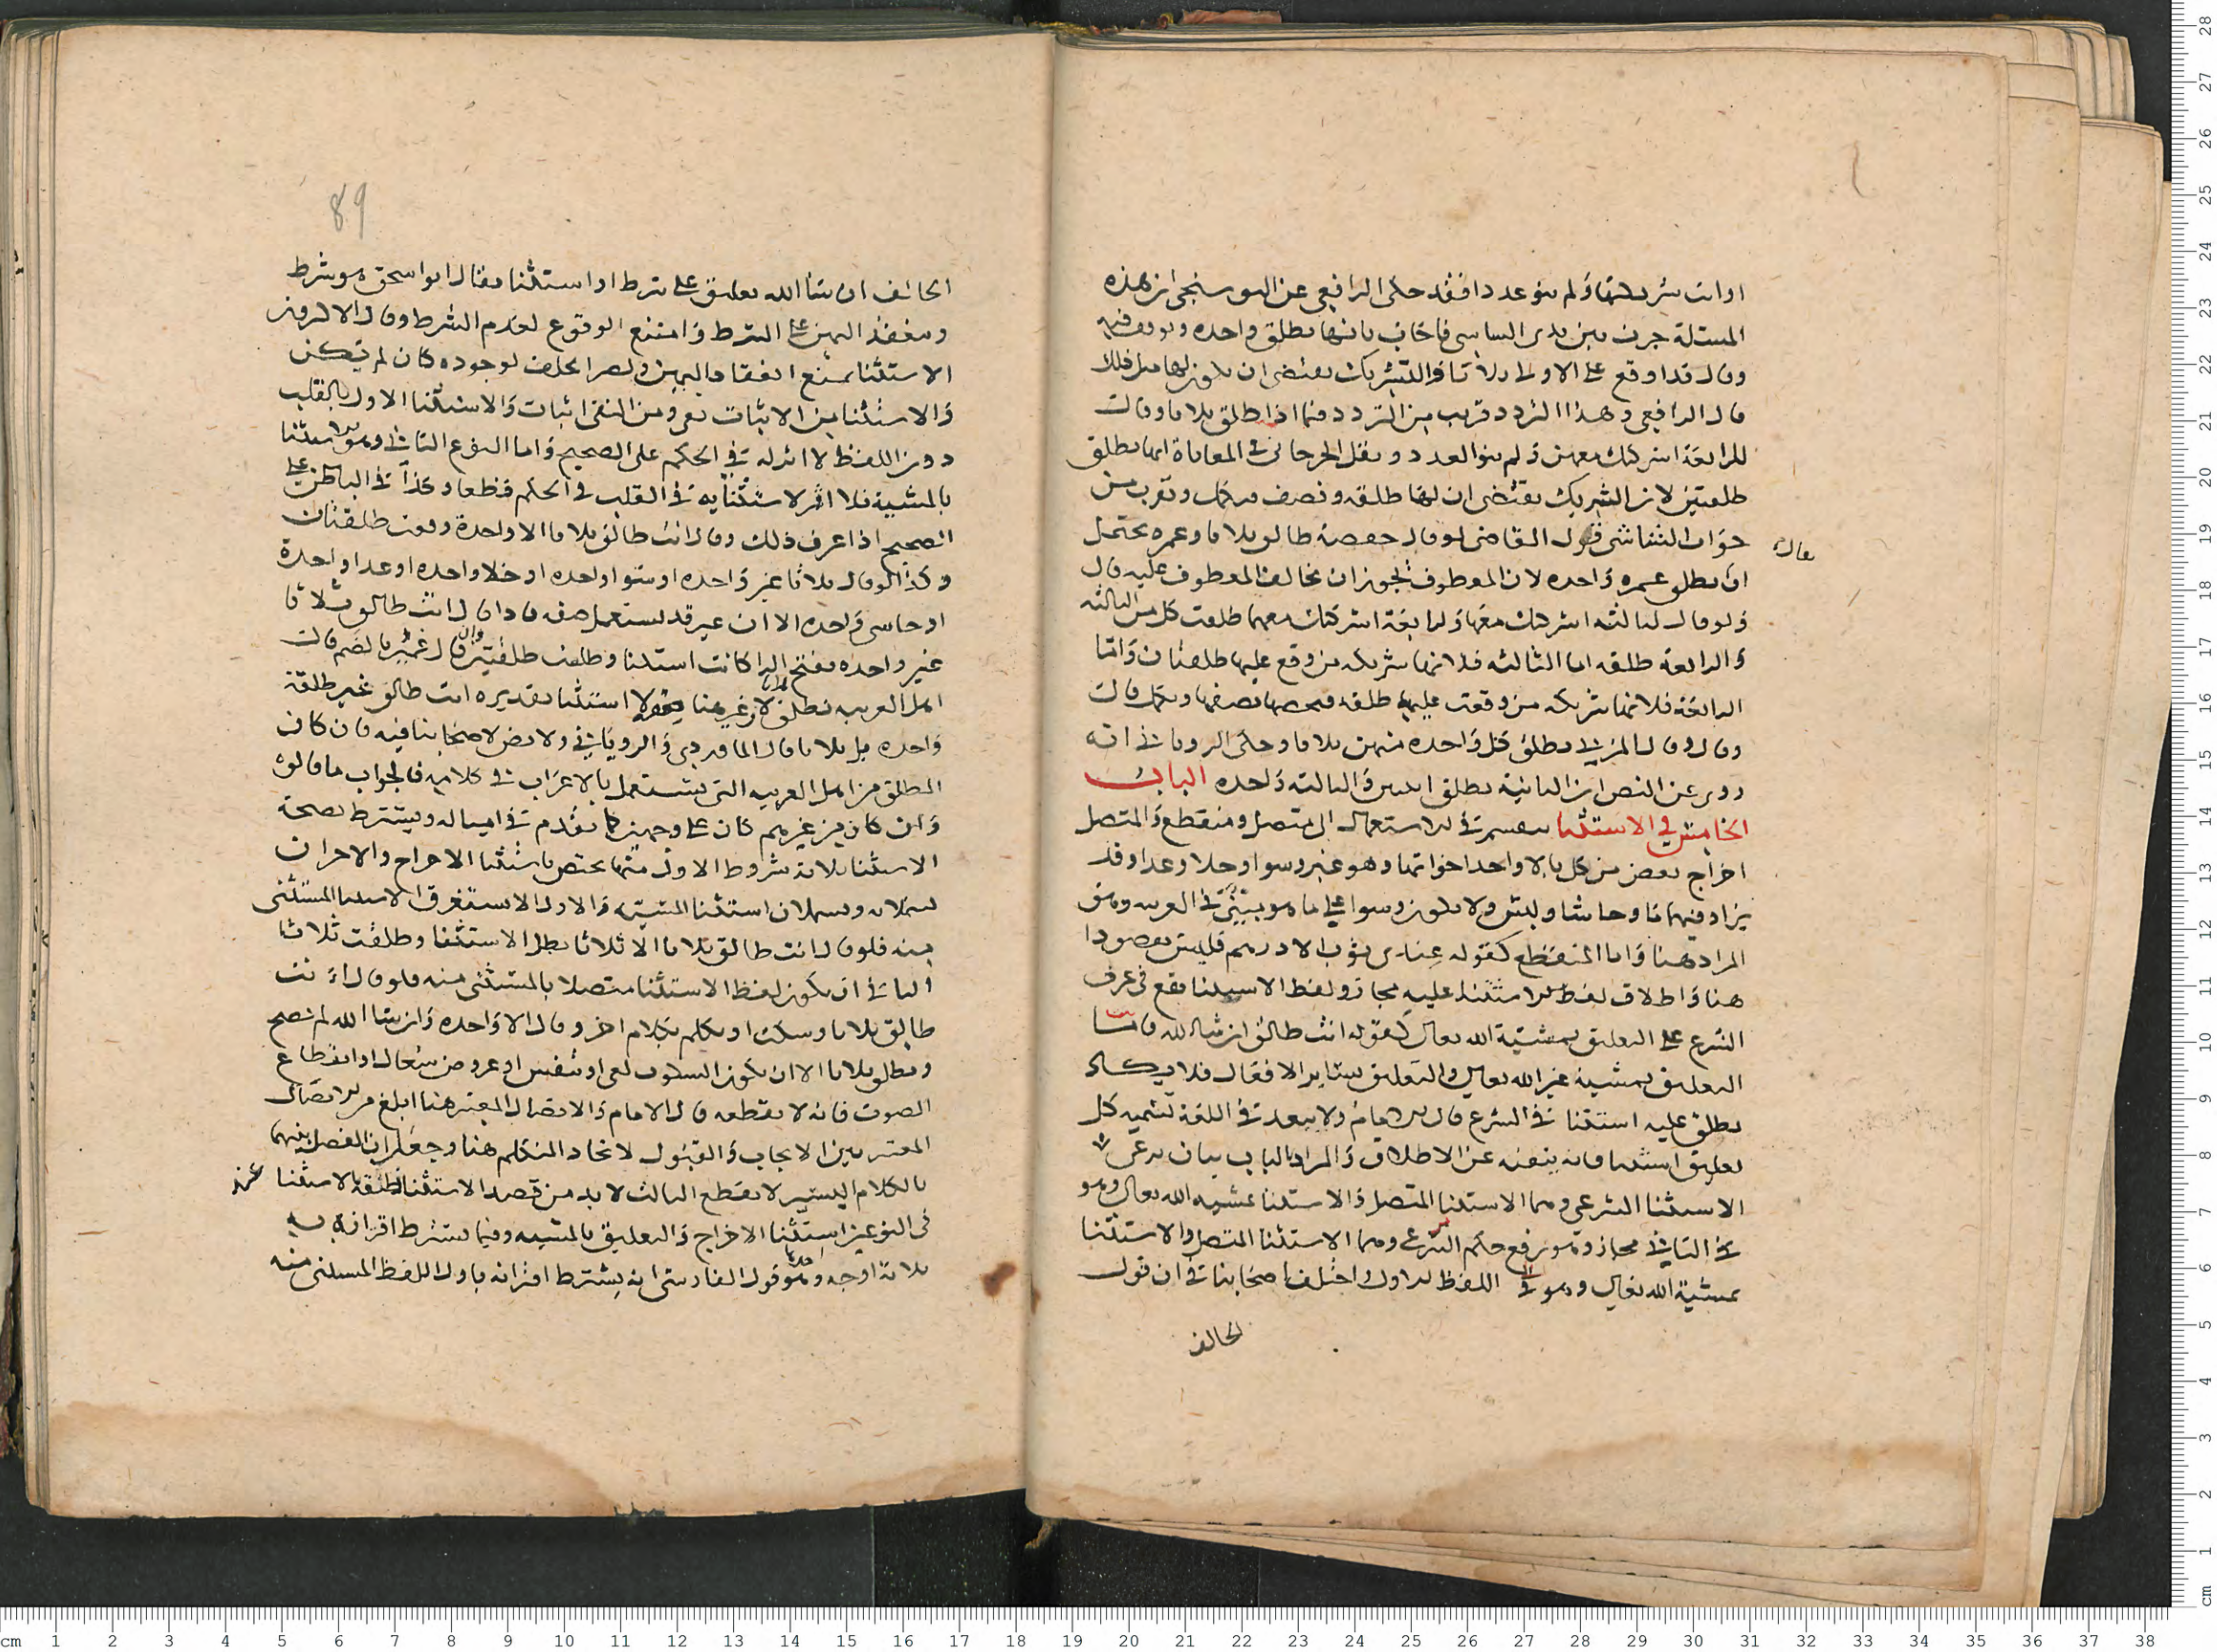 او انت شريكتها ولم ينو عددا فقد حكى الرافعي عن البوسنجي ان هذه
المسئلة جرت بين يدي الشاشي فاجاب بانها تطلق واحده وتوقف فيه
وقال قد اوقع على الاولى ثلاثا والتشريك يقتضي ان يكون لها مثل ذلك
قال الرافعي وهذا التردد قريب من التردد فيما اذا طلق ثلاثا وقال
للرابعة اشركتك معهن ولم ينو العدد ونقل الجرجاني في المعاياة انها تطلق
طلقتين لان التشريك يقتضي ان لها طلقه ونصف فتكمل وتقرب من
جواب الشاشي قول القاضي لو قال حفصة طالق ثلاثا وعمره يحتمل
يقال
ان تطلق عمره واحده لان المعطوف يجوز ان يخالف المعطوف عليه قال
ولو قال لثالثه اشركتك معها ولرابعة اشركتك معهما طلقت كل من الثالثه
والرابعة طلقه اما الثالثه فلانها شريكه من وقع عليها طلقتان واما
الرابعة فلانها شريكه من وقعت عليها طلقه فيخصها نصفها وتكمل قال
وقال المزني تطلق كل واحده منهن ثلاثا وحكى الروياني انه
روى عن النص ان الثانية تطلق اثنتين والثالثه واحده الباب
الخامس في الاستثنا ينقسم في الاستعمال الى متصل ومنقطع والمتصل
اخراج بعض من كل بالا واحد اخواتها وهو غير وسوا وخلا وعدا وقد
يزاد فيها ما وحاشا وليس ولا يكون وسوا على ما هو مبين في العربيه وهو
المراد هنا واما المنقطع كقوله عندي ثوب الا درهم فليس مقصودا
هنا واطلاق لفظ الاستثنا عليه مجاز ولفظ الاستثنا يقع في عرف
الشرع على التعليق بمشيئة الله تعالى كقوله انت طالق ان شا الله فاما
التعليق بمشيئة غير الله تعالى والتعليق بساير الافعال فلا يكاد
يطلق عليه استثنا في الشرع قال الامام ولا يبعد في اللغة تسميه كل
تعليق استثنا فانه يثنيه عن الاطلاق والمراد بالباب بيان نوعي
الاستثنا الشرعي وهما الاستثنا المتصل والاستثنا بمشيه الله تعالى وهو
في الثاني مجاز وهو رفع حكم الشرعي وهما الاستثنا المتصل والاستثنا
بمشية الله تعالى وهو في اللفظ الاول واختلف اصحابنا في ان قول
الحالف
89
الحالف ان شا الله تعليق على شرط او استثنا فقال ابو اسحق هو شرط
ومنعقد اليمين على الشرط وامتنع الوقوع لعدم الشرط وقال الاكثرون
الاستثنا يمنع انعقاد اليمين ويصير الحلف لوجوده كان لم يكن
والاستثنا من الاثبات نفي ومن النفي اثبات والاستثنا الاول بالقلب
دون اللفظ لا اثر له في الحكم على الصحيح واما النوع الثاني وهو الاستثنا
بالمشية فلا اثر لاستثنايه في القلب في الحكم قطعا وكذا في الباطن على
الصحيح اذا عرف ذلك وقال انت طالق ثلاثا الا واحدة وقعت طلقتان
وكذا لو قال ثلاثا غير واحده او سوا واحده او خلا واحده او عدا واحدة
او حاشى واحده الا ان غير قد يستعمل صفه فاذا قال انت طالق ثلاثا
غير واحده بفتح الرا كانت استثنا وطلقت طلقتين وان قال غير بالضم قالت
اهل العربيه تطلق ثلاثا لان غير هنا صفه لا استثنا تقديره انت طالق غير طلقة
واحده بل ثلاثا قال الماوردي والروياني ولا نص لاصحابنا فيه فان كان
المطلق من اهل العربيه التي يستعمل بالاعراب في كلامه فالجواب ما قالوه
وان كان من غيرهم كان على وجهين كما تقدم في امثاله ويشترط لصحة
الاستثنا ثلاثة شروط الاول منها يختص باستثنا الاخراج والاخران
يشملانه ويشملان استثنا المشيه والاول الا يستغرق الاستثنا المستثنى
منه فلو قال انت طالق ثلاثا الا ثلاثا بطل الاستثنا وطلقت ثلاثا
الثاني ان يكون لفظ الاستثنا متصلا بالمستثنى منه فلو قال انت
طالق ثلاثا وسكت او تكلم بكلام اخر وقال الا واحده وان شا الله لم تصح
وتطلق ثلاثا الا ان يكون السكوت لعي او تنفس او عروض سعال او انقطاع
الصوت فانه لا يقطعه قال الامام والاتصال المعتبر هنا ابلغ من الاتصال
المعتبر بين الايجاب والقبول لاتحاد المتكلم هنا وجعل ان الفصل بينهما
بالكلام اليسير لا يقطع الثالث لا بد من قصد الاستثنا فلفظه بالاستثنا
في النوعين استثنا الاخراج والتعليق بالمشيه وفيما يشترط اقترانه به
ثلاثة اوجه وهو قول الفارسي انه يشترط اقترانه باول اللفظ المستثنى منه